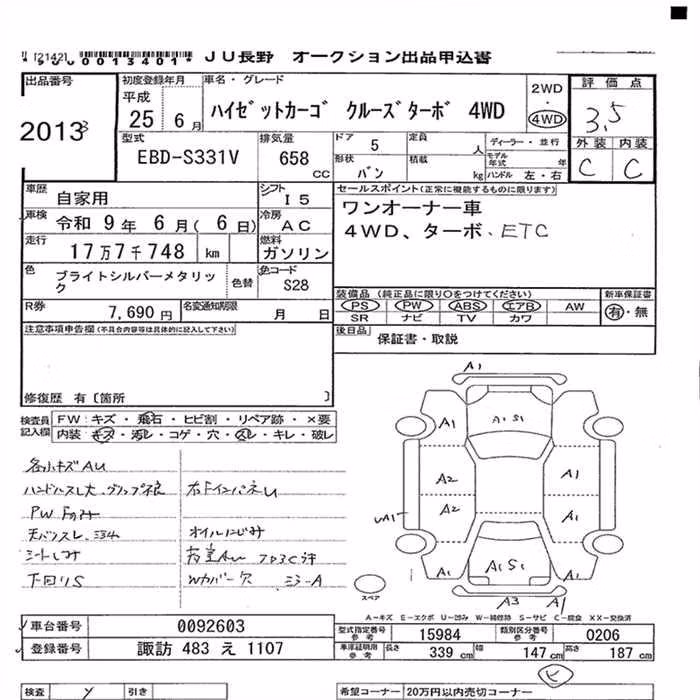 [2142] *9000013401* JU長野 オークション出品申込書
出品番号
2013
初度登録年月
平成
25 6月
車名・グレード
ハイゼットカーゴ クルーズターボ 4WD
2WD
・
4WD
評価点
3.5
外装 内装
C C
型式
EBD-S331V
排気量
658
CC
ドア 5
形状 バン
定員 人
積載 kg
ディーラー・並行
モデル年式 年
ハンドル 左・右
車歴 自家用
シフト I5
車検 令和 9年 6月( 6日)
冷房 AC
走行 17万7千748 km
燃料 ガソリン
色 ブライトシルバーメタリック
色替
色コード S28
R券 7,690円
名変通知期限 月 日
セールスポイント(正常に機能するものに限ります)
ワンオーナー車
4WD、ターボ、ETC
装備品 (純正品に限り○をつけてください)
PS PW ABS エアB AW
SR ナビ TV カワ
新車保証書
有・無
後日品 保証書・取説
注意事項申告欄(不具合内容等は具体的に記入して下さい)
修復歴 有〔箇所 〕
検査員記入欄
FW:キズ・飛石・ヒビ割・リペア跡・×要
内装:キズ・汚レ・コゲ・穴・スレ・キレ・破レ
各小キズAU
PW
オイルにじみ
Wカバー穴
下回りS
A1
A1
A1S1
A1
A2
A1
A2
A1
UA1
A1
A1S1
A1
A3
A1
スペア
A-キズ E-エクボ U-凹み W-補修跡 S-サビ C-腐食 XX-交換済
車台番号 0092603
登録番号 諏訪 483 え 1107
型式指定番号 参考 15984
類別区分番号 参考 0206
車庫証明用 参考 長さ 339cm 幅 147cm 高さ 187cm
ヒ
検査
引き
希望コーナー 20万円以内売切コーナー